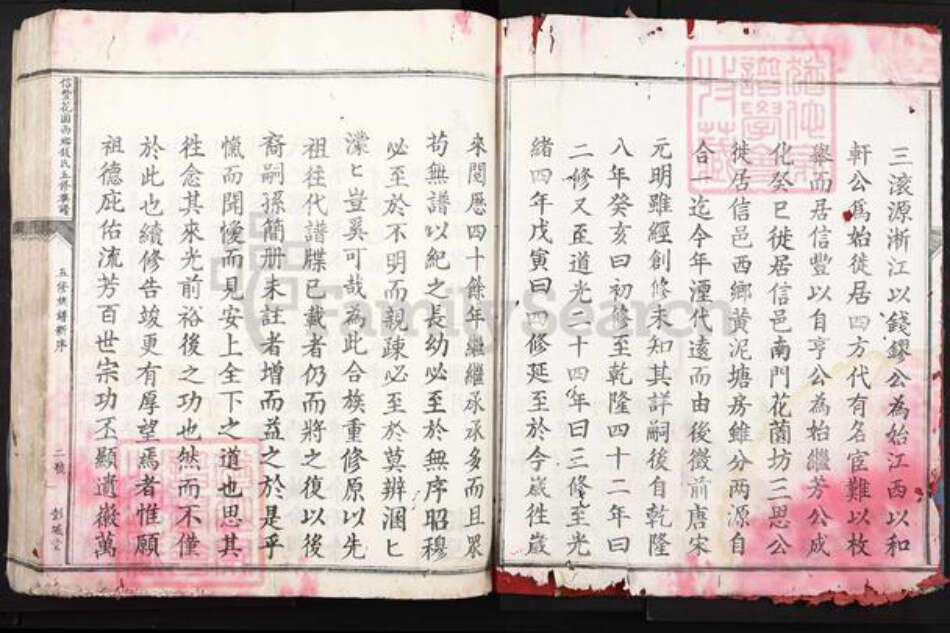 三滾源淅江以錢鏐公為始江西以和
軒公為始徙居四方代有名宦難以枚
舉而居信豐以自亨公為始繼芳公成
化癸巳徙居信邑南門花園坊三思公
徙居信邑西鄉黃泥塘房雖分两源自
合一迄今年湮代遠而由後徵前唐宋
元明雖經創修未知其詳嗣後自乾隆
八年癸亥曰初修至乾隆四十二年曰
二修又至道光二十四年曰三修至光
緒四年戊寅曰四修延至於今歲徃歲
來閱歷四十餘年繼繼承承多而且眾
苟無譜以紀之長幼必至於無序昭穆
必至於不明而親疎必至於莫辨溷匕
濛匕豈奚可哉為此合族重修原以先
祖徃代譜牒已載者仍而將之復以後
裔嗣孫簡册未註者增而益之於是乎
愾而開懮而見安上全下之道也思其
徃念其來光前裕後之功也然而不僅
於此也續修告竣更有厚望焉者惟願
祖德庇佑流芳百世宗功丕顯遺徽萬
信豐花園两鄉錢氏五修族譜
五修族譜新序
二號
彭城堂
FamilySearch